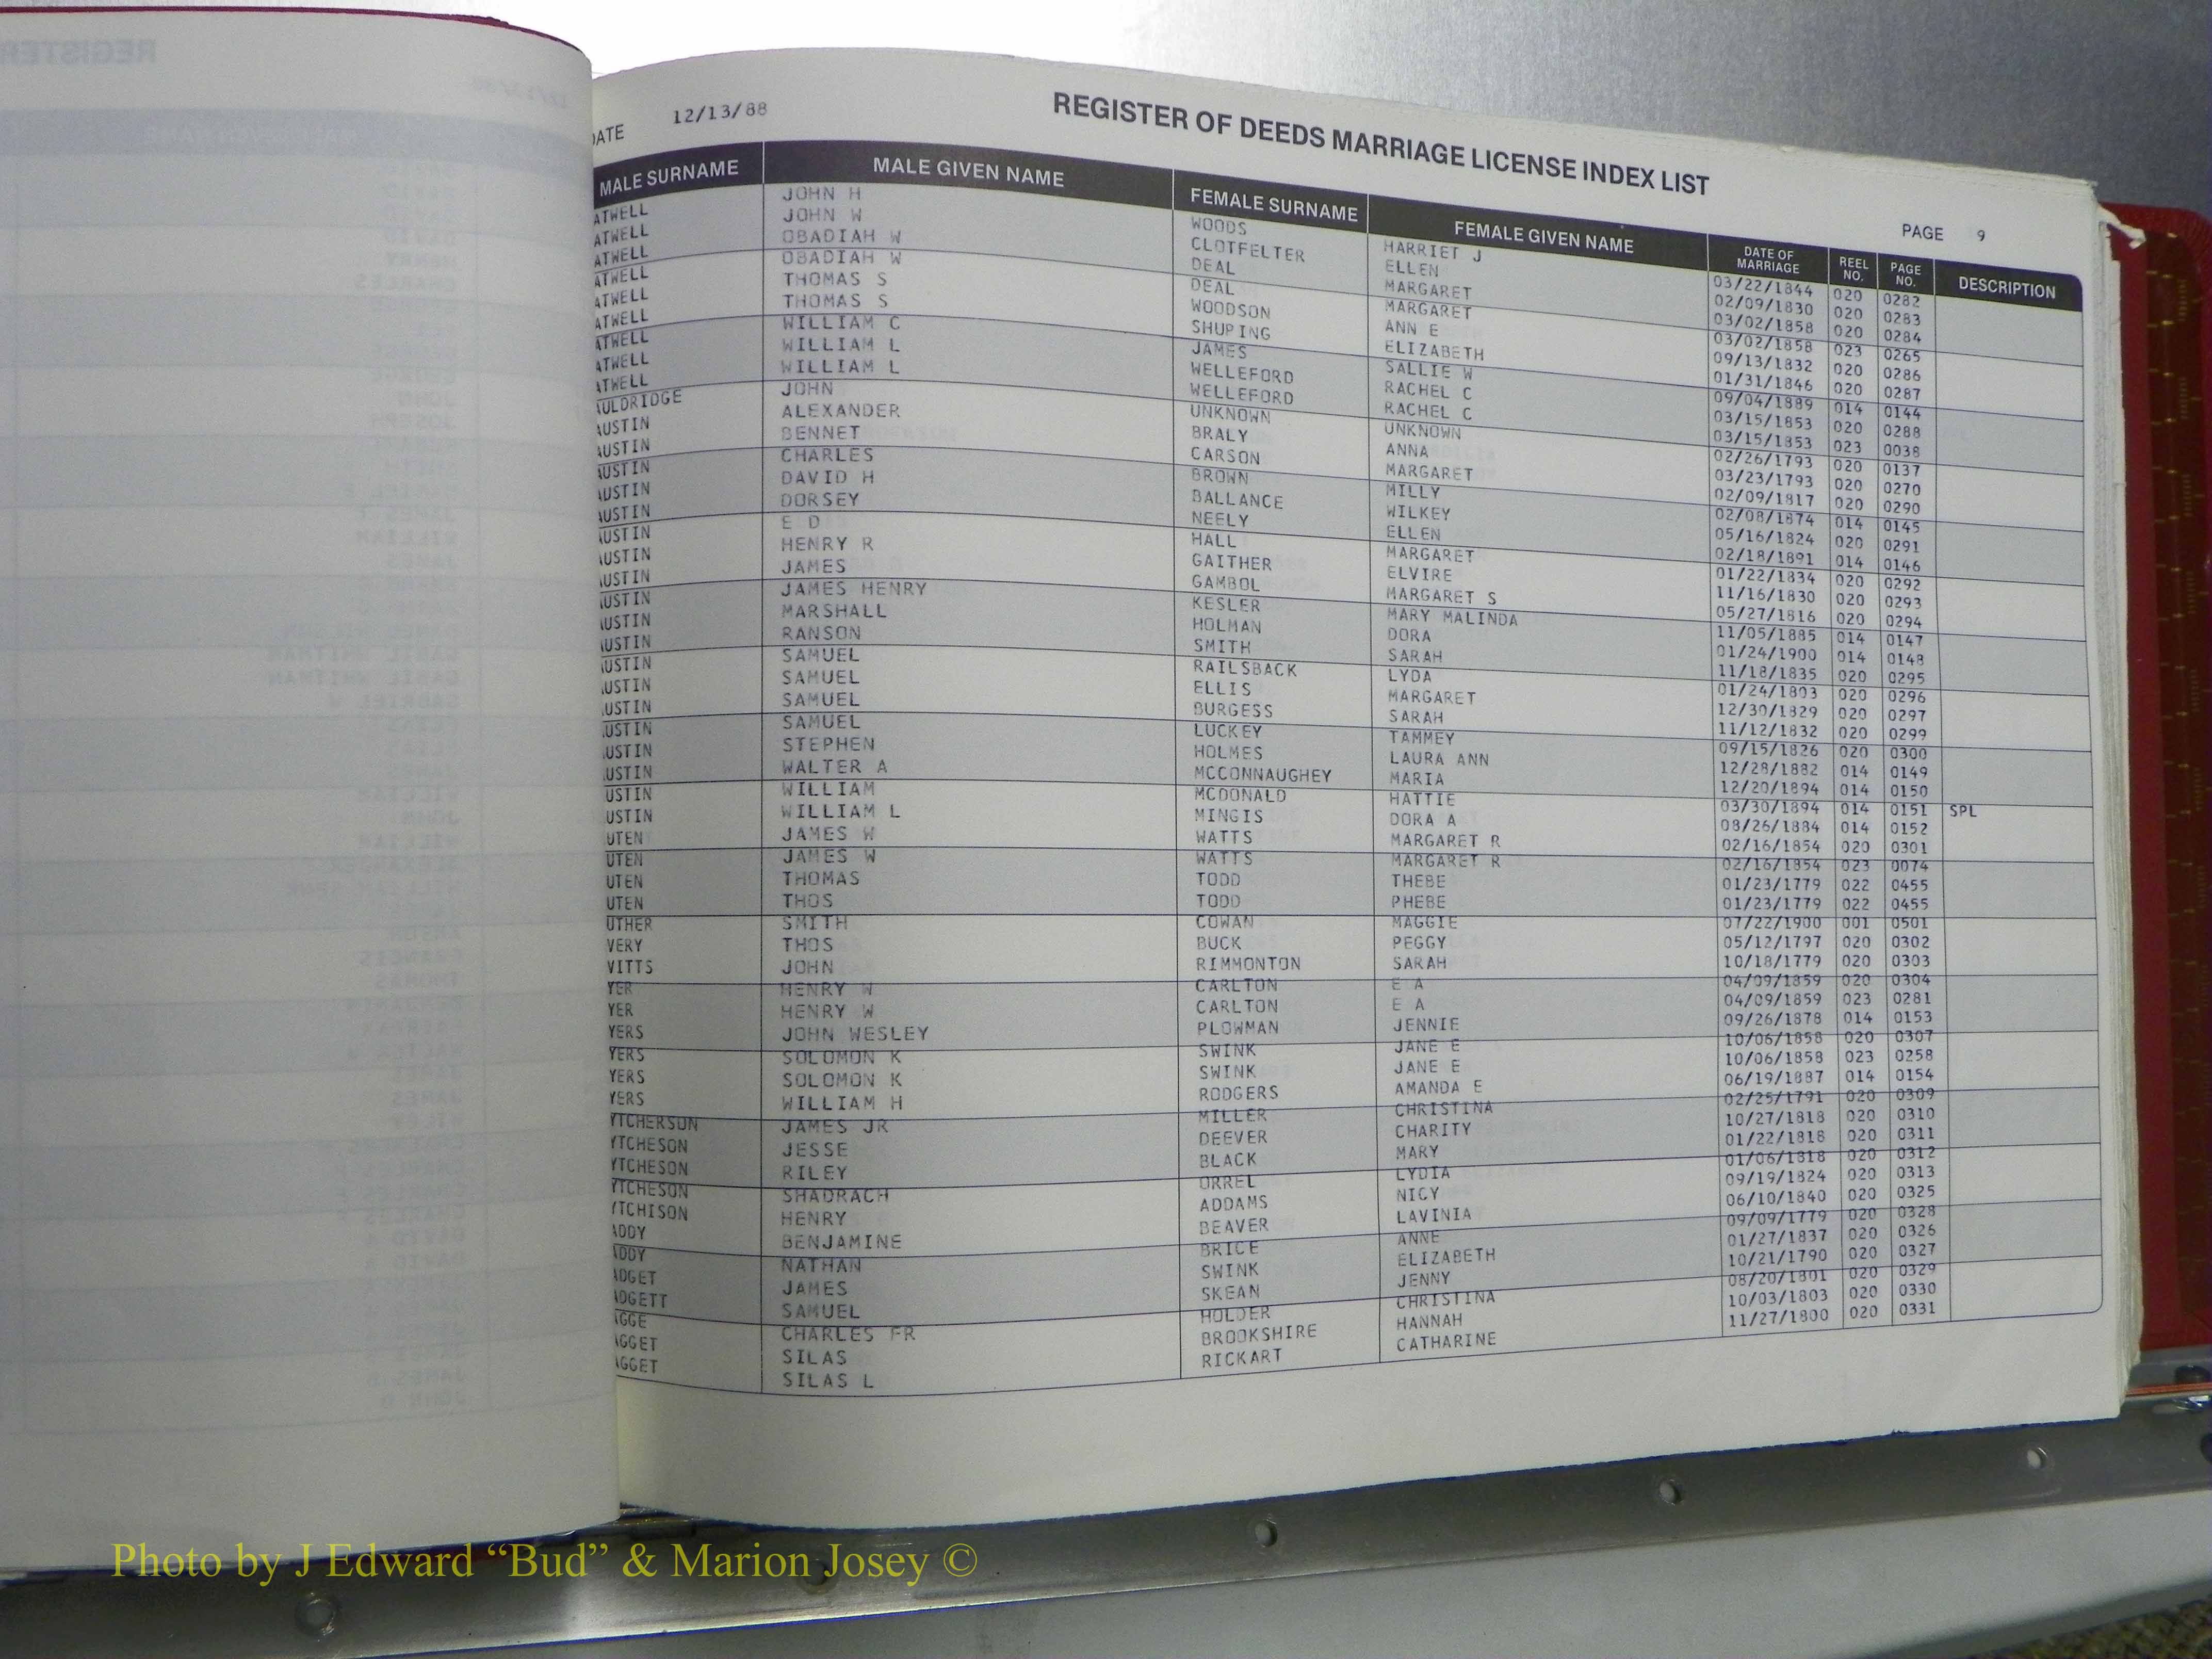 REGISTER OF DEEDS MARRIAGE LICENSE INDEX LIST
DATE 12/13/88 PAGE 9
MALE SURNAME MALE GIVEN NAME FEMALE SURNAME FEMALE GIVEN NAME DATE OF MARRIAGE REEL NO. PAGE NO. DESCRIPTION
ATWELL JOHN H WOODS HARRIET J 03/22/1844 020 0282
ATWELL JOHN W CLOTFELTER ELLEN 02/09/1830 020 0283
ATWELL OBADIAH W DEAL MARGARET 03/02/1858 020 0284
ATWELL OBADIAH W DEAL MARGARET 03/02/1858 023 0265
ATWELL THOMAS S WOODSON ANN E 09/13/1832 020 0286
ATWELL THOMAS S SHUPING ELIZABETH 01/31/1846 020 0287
ATWELL WILLIAM C JAMES SALLIE W 09/04/1889 014 0144
ATWELL WILLIAM L WELLEFORD RACHEL C 03/15/1853 020 0288
ATWELL WILLIAM L WELLEFORD RACHEL C 03/15/1853 023 0038
AULDRIDGE JOHN UNKNOWN UNKNOWN 02/26/1793 020 0137
AUSTIN ALEXANDER BRALY ANNA 03/23/1793 020 0270
AUSTIN BENNET CARSON MARGARET 02/09/1817 020 0290
AUSTIN CHARLES BROWN MILLY 02/08/1874 014 0145
AUSTIN DAVID H BALLANCE WILKEY 05/16/1824 020 0291
AUSTIN DORSEY NEELY ELLEN 02/18/1891 014 0146
AUSTIN E D HALL MARGARET 01/22/1834 020 0292
AUSTIN HENRY R GAITHER ELVIRE 11/16/1830 020 0293
AUSTIN JAMES GAMBOL MARGARET S 05/27/1816 020 0294
AUSTIN JAMES HENRY KESLER MARY MALINDA 11/05/1885 014 0147
AUSTIN MARSHALL HOLMAN DORA 01/24/1900 014 0148
AUSTIN RANSON SMITH SARAH 11/18/1835 020 0295
USTIN SAMUEL RAILSBACK LYDA 01/24/1803 020 0296
USTIN SAMUEL ELLIS MARGARET 12/30/1829 020 0297
USTIN SAMUEL BURGESS SARAH 11/12/1832 020 0299
USTIN SAMUEL LUCKEY TAMMEY 09/15/1826 020 0300
USTIN STEPHEN HOLMES LAURA ANN 12/28/1882 014 0149
USTIN WALTER A MCCONNAUGHEY MARIA 12/20/1894 014 0150
USTIN WILLIAM MCDONALD HATTIE 03/30/1894 014 0151 SPL
USTIN WILLIAM L MINGIS DORA A 08/26/1884 014 0152
UTEN JAMES W WATTS MARGARET R 02/16/1854 020 0301
UTEN JAMES W WATTS MARGARET R 02/16/1854 023 0074
UTEN THOMAS TODD THEBE 01/23/1779 022 0455
UTEN THOS TODD PHEBE 01/23/1779 022 0455
UTHER SMITH COWAN MAGGIE 07/22/1900 001 0501
VERY THOS BUCK PEGGY 05/12/1797 020 0302
VITTS JOHN RIMMONTON SARAH 10/18/1779 020 0303
YER HENRY W CARLTON E A 04/09/1859 020 0304
YER HENRY W CARLTON E A 04/09/1859 023 0281
YERS JOHN WESLEY PLOWMAN JENNIE 09/26/1878 014 0153
YERS SOLOMON K SWINK JANE E 10/06/1858 020 0307
YERS SOLOMON K SWINK JANE E 10/06/1858 023 0258
YERS WILLIAM H RODGERS AMANDA E 06/19/1887 014 0154
YTCHERSON JAMES JR MILLER CHRISTINA 02/25/1791 020 0309
YTCHESON JESSE DEEVER CHARITY 10/27/1818 020 0310
YTCHESON RILEY BLACK MARY 01/22/1818 020 0311
YTCHESON SHADRACH ORREL LYDIA 01/06/1818 020 0312
YTCHISON HENRY ADDAMS NICY 09/19/1824 020 0313
ADDY BENJAMINE BEAVER LAVINIA 06/10/1840 020 0325
ADDY NATHAN BRICE ANNE 09/09/1779 020 0328
ADGET JAMES SWINK ELIZABETH 01/27/1837 020 0326
ADGETT SAMUEL SKEAN JENNY 10/21/1790 020 0327
AGGE CHARLES FR HOLDER CHRISTINA 08/20/1801 020 0329
AGGET SILAS BROOKSHIRE HANNAH 10/03/1803 020 0330
AGGET SILAS L RICKART CATHARINE 11/27/1800 020 0331
Photo by J Edward “Bud” & Marion Josey ©